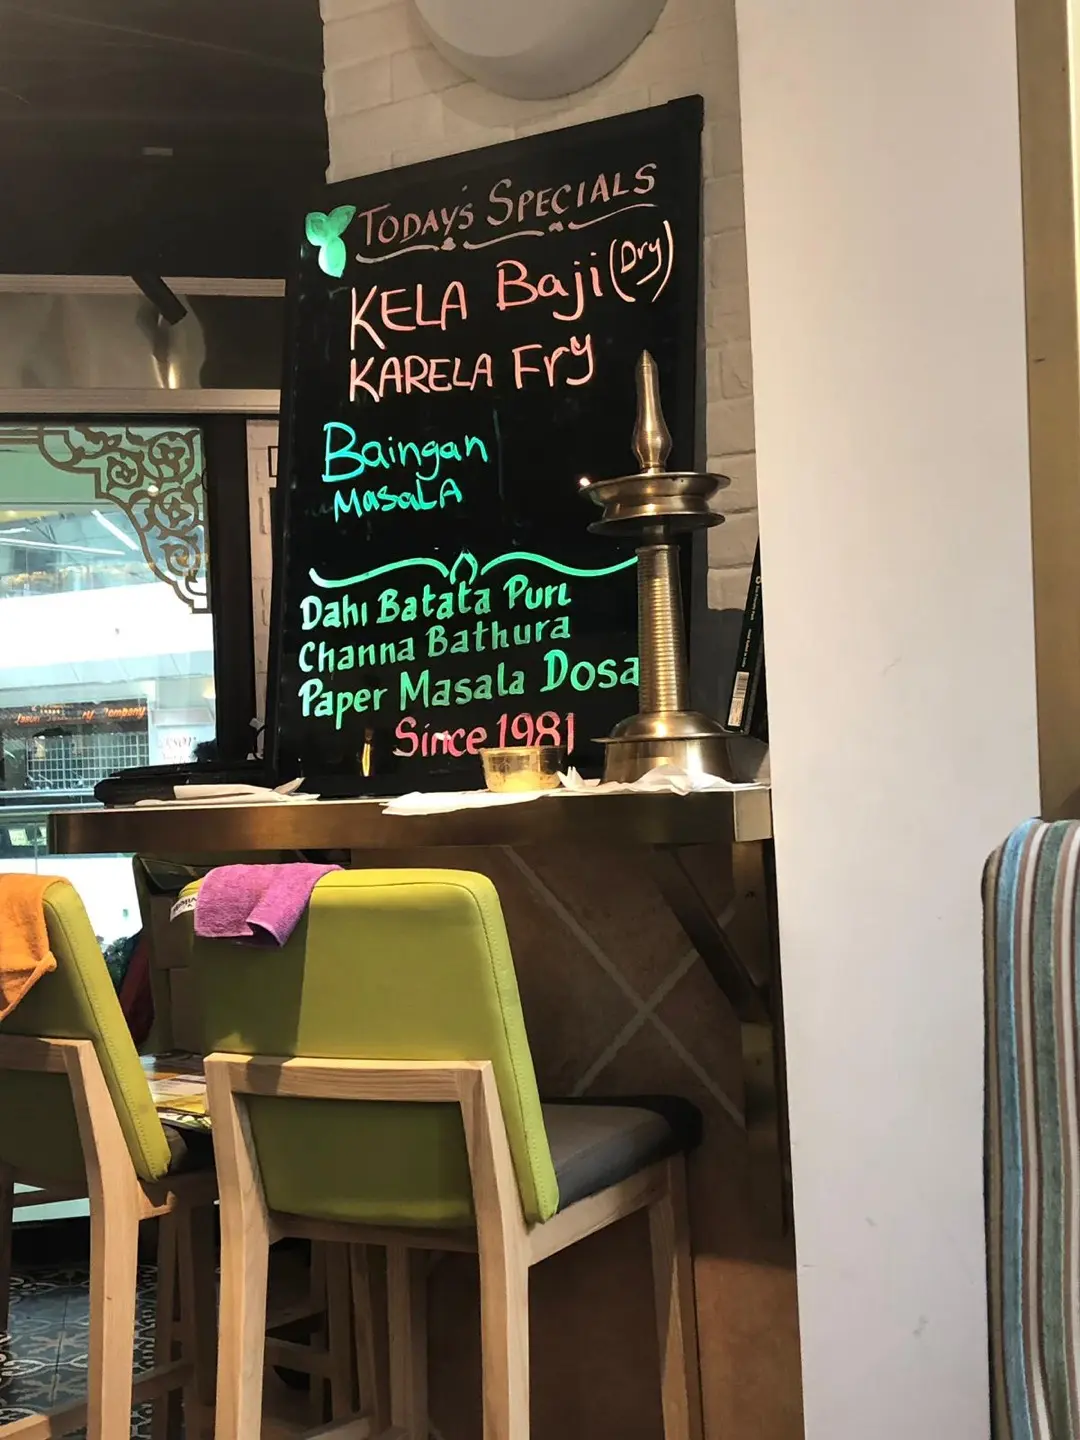 TODAY'S SPECIALS
KELA Baji (Dry)
KARELA Fry
Baingan
MASALA
Dahi Batata Puri
Channa Bathura
Paper Masala Dosa
Since 1981